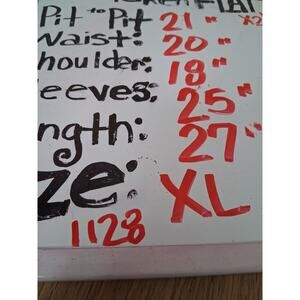 FLAT
Pit to Pit 21" X2
Waist: 20"
houlder: 18"
leeves: 25"
ngth: 27"
ze: XL
1128